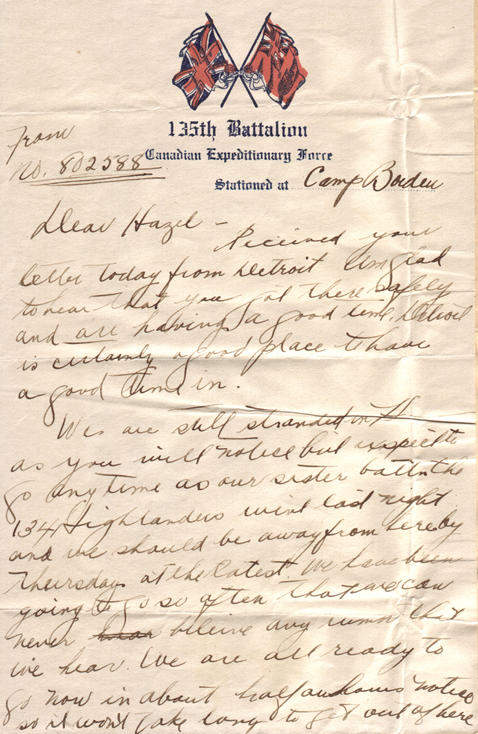 135th Battalion
Canadian Expeditionary Force
Stationed at Camp Borden
From
No. 802588
Dear Hazel -
Received your
letter today from Detroit Am glad
to hear that you got there safely
and are having a good time. Detroit
is certainly a good place to have
a good time in.
We are still stranded in
as you will notice but expect to
go any time as our sister battn the
134 Highlanders went last night
and we should be away from here by
Thursday at the latest. We have been
going to go so often that we can
never beleive any rumor that
we hear. We are all ready to
go now in about half an hours notice
so it won't take long to get out of here